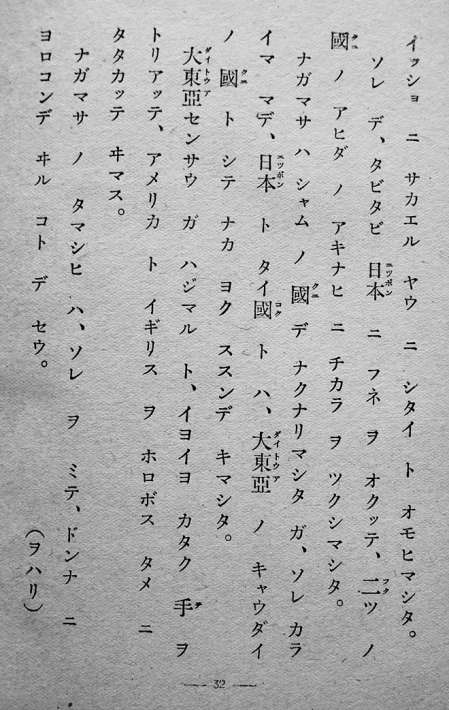 イッショ ニ サカエル ヤウ ニ シタイ ト オモヒマシタ。
ソレ デ、タビタビ 日本 ニ フネ ヲ オクッテ、二ツ ノ
國 ノ アヒダ ノ アキナヒ ニ チカラ ヲ ツクシマシタ。
ナガマサ ハ シャム ノ 國 デ ナクナリマシタ ガ、ソレ カラ
イマ マデ、日本 ト タイ國 ト ハ、大東亞 ノ キャウダイ
ノ 國 ト シテ ナカ ヨク ススンデ キマシタ。
大東亞センサウ ガ ハジマル ト、イヨイヨ カタク 手 ヲ
トリアッテ、アメリカ ト イギリス ヲ ホロボス タメ ニ
タタカッテ ヰマス。
ナガマサ ノ タマシヒ ハ、ソレ ヲ ミテ、ドンナ ニ
ヨロコンデ ヰル コト デ セウ。
(ヲハリ)
— 32 —